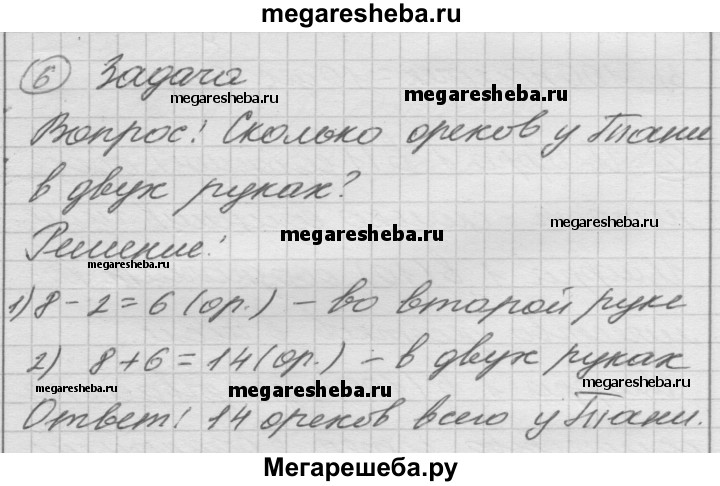 megaresheba.ru
6 Задача
megaresheba.ru
megaresheba.ru
Вопрос: Сколько орехов у Тани
в двух руках?
megaresheba.ru
Решение:
megaresheba.ru
megaresheba.ru
1) 8 - 2 = 6 (ор.) - во второй руке
2) 8 + 6 = 14 (ор.) - в двух руках
megaresheba.ru
megaresheba.ru
megaresheba.ru
Ответ: 14 орехов всего у Тани.
Мегарешеба.ру